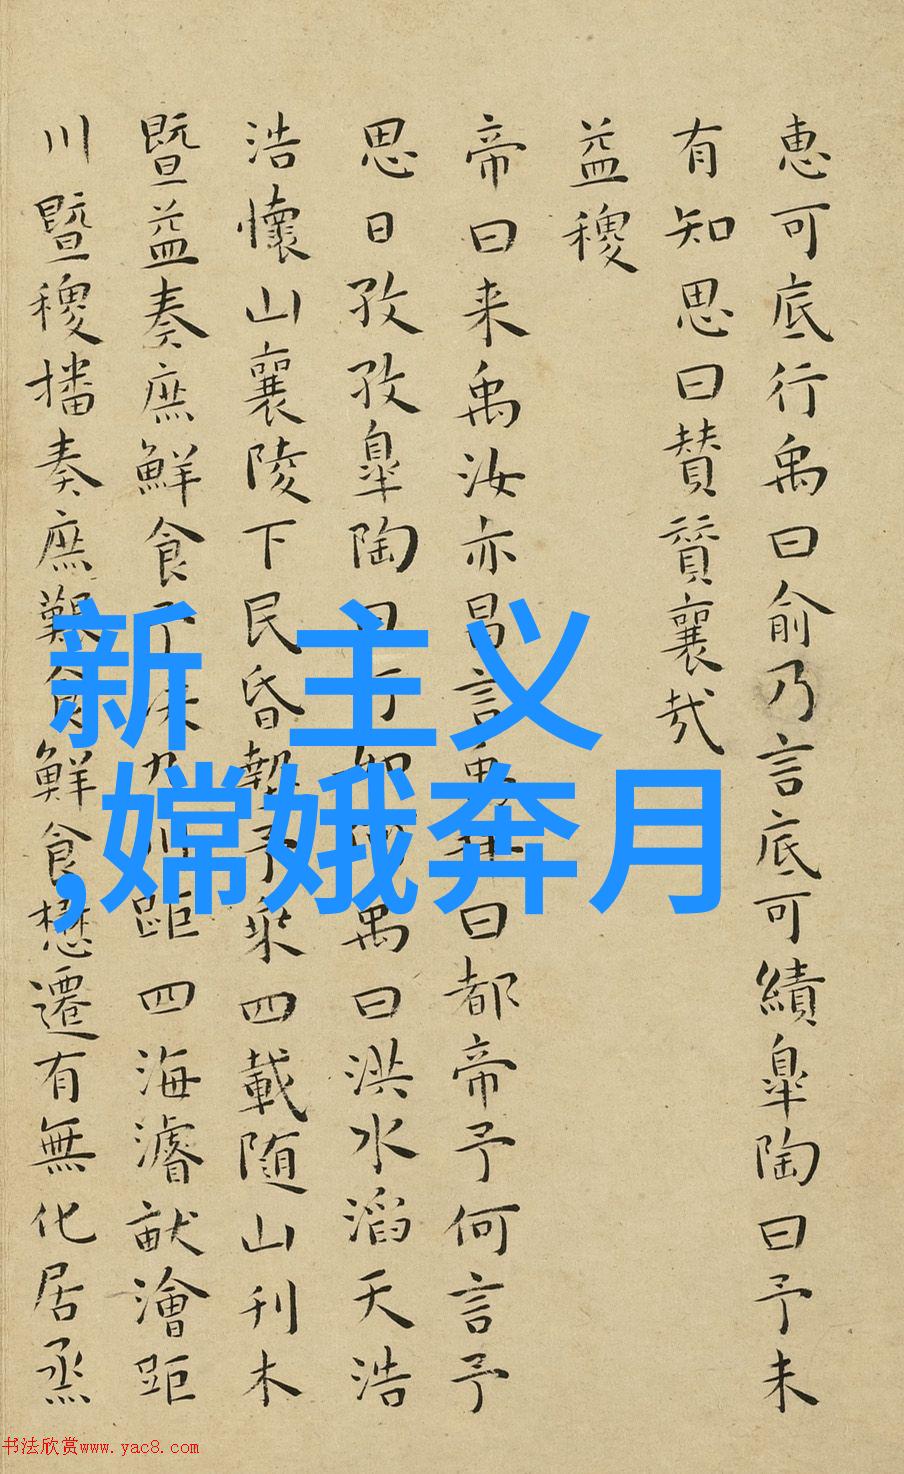 惠可底行禹曰俞乃言底可績皐陶曰予未
有知思曰贊贊襄哉
益稷
帝曰来禹汝亦昌言禹拜曰都帝予何言予
思日孜孜皐陶曰吁如何禹曰洪水滔天浩
浩懷山襄陵下民昏墊予乗四載随山刊木
暨益奏庶鮮食予決九川距四海濬畎澮距
川暨稷播奏庶艱食鮮食懋遷有無化居烝
新 主义
,嫦娥奔月
书法欣赏www.yac8.com